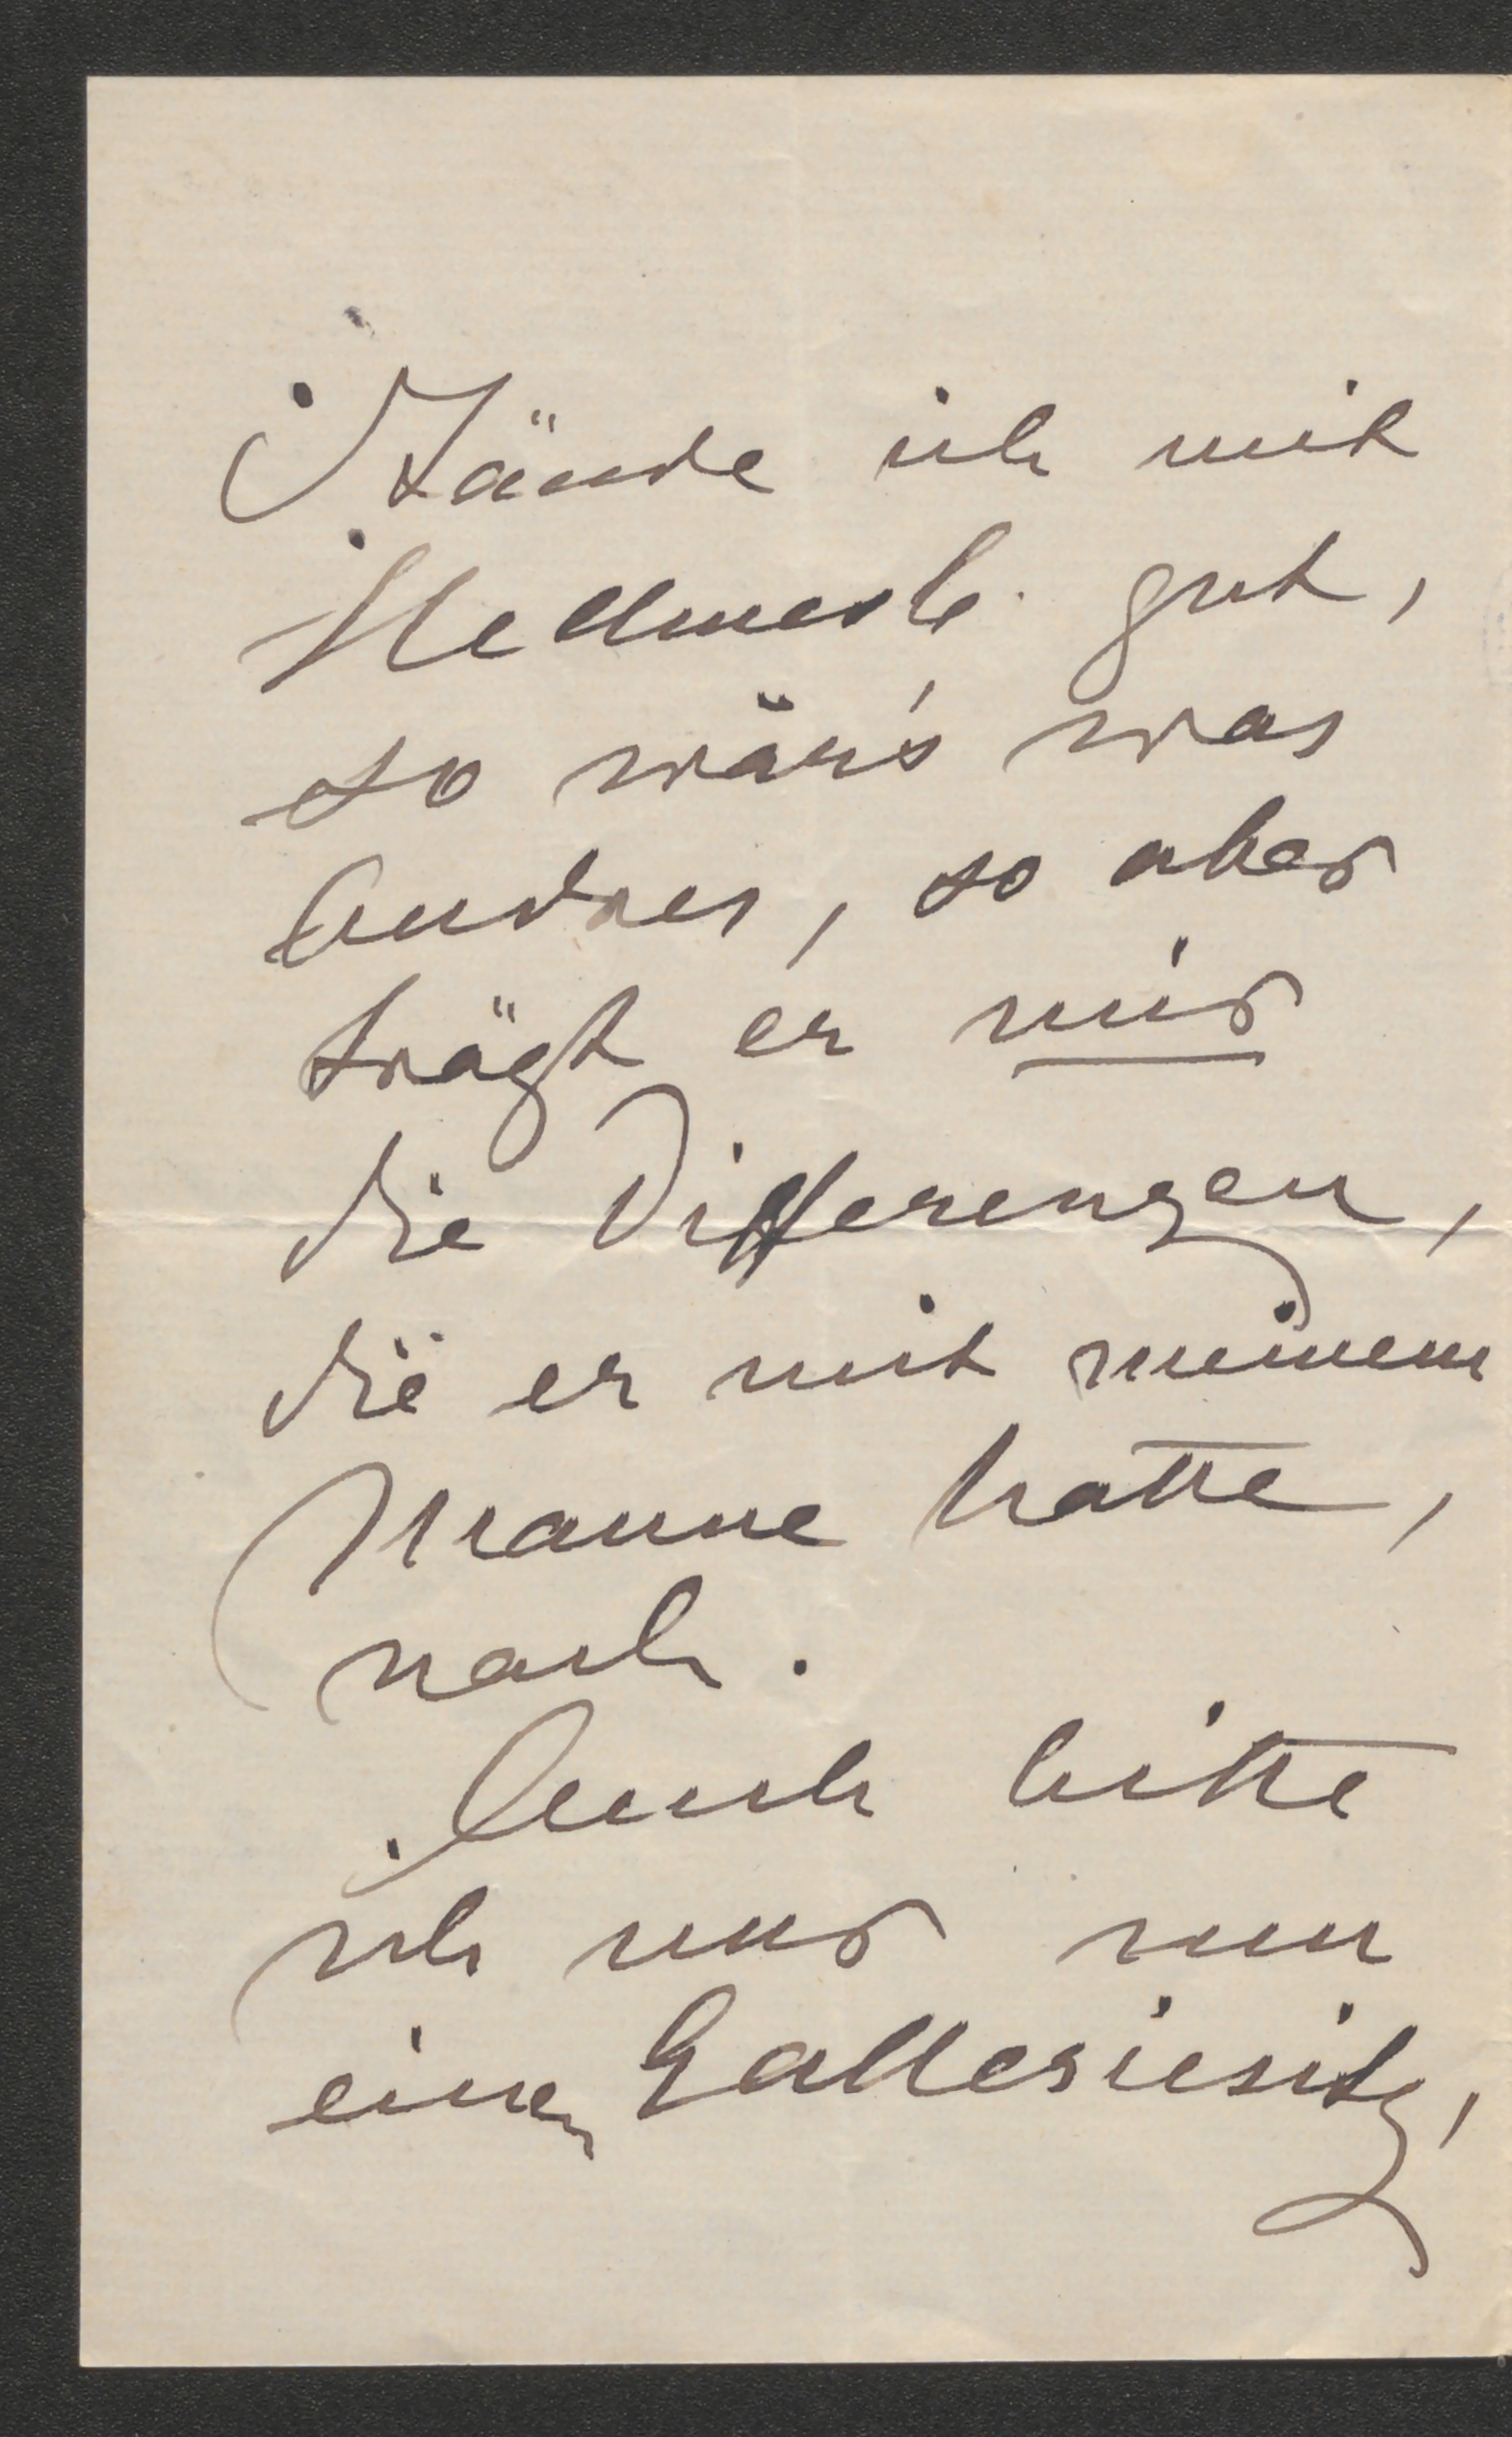 Stände ich mit
Hellmesb. gut,
so wär's was
Andres, so aber
trägt er mir
die Differenzen,
die er mit meinem
Manne hatte,
nach.
Auch bitte
ich nur um
einen Galleriesitz,